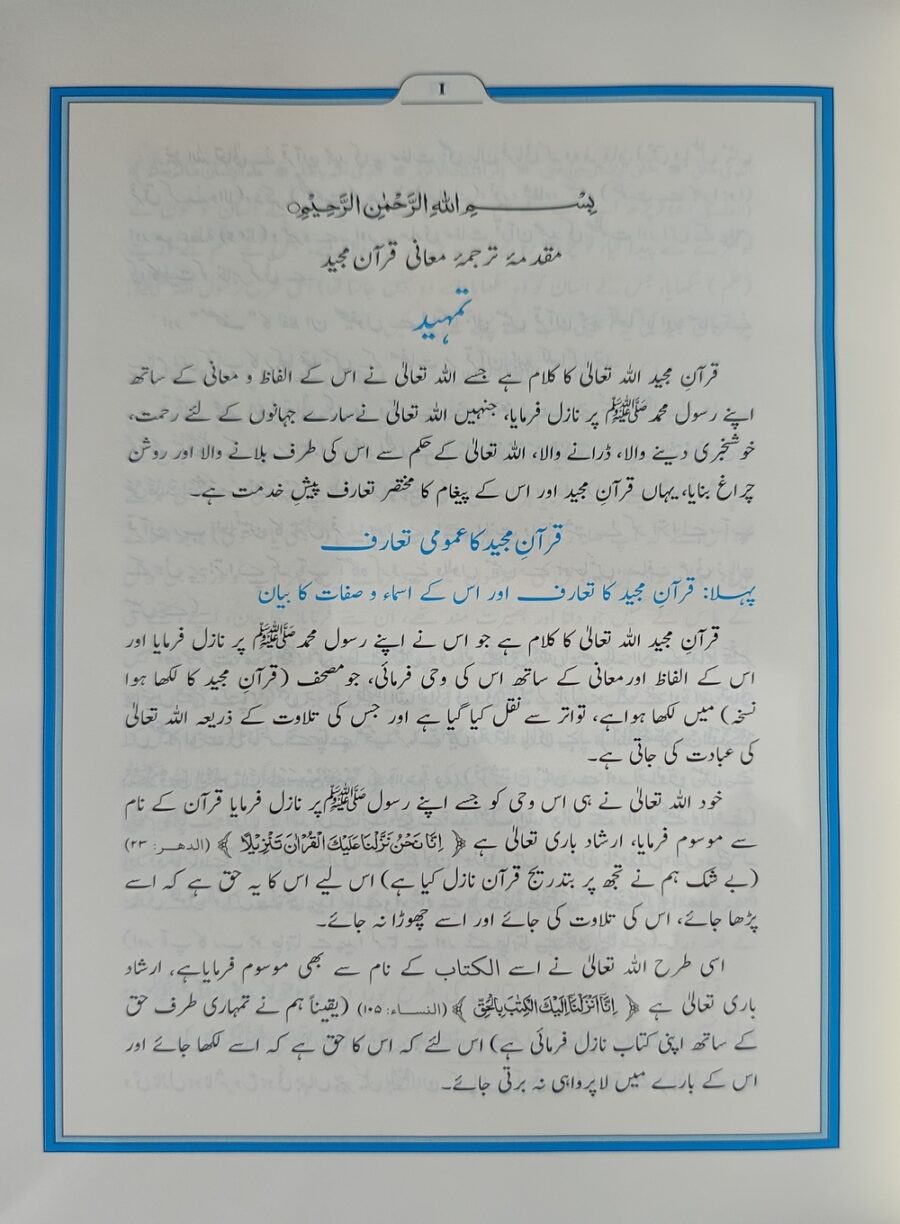 I
بِسْمِ اللهِ الرَّحْمٰنِ الرَّحِيْمِ○
مقدمۂ ترجمۂ معانی قرآن مجید
تمہید
قرآنِ مجید اللہ تعالیٰ کا کلام ہے جسے اللہ تعالیٰ نے اس کے الفاظ و معانی کے ساتھ
اپنے رسول محمد ﷺ پر نازل فرمایا، جنہیں اللہ تعالیٰ نے سارے جہانوں کے لئے رحمت،
خوشخبری دینے والا، ڈرانے والا، اللہ تعالیٰ کے حکم سے اس کی طرف بلانے والا اور روشن
چراغ بنایا، یہاں قرآنِ مجید اور اس کے پیغام کا مختصر تعارف پیشِ خدمت ہے۔
قرآنِ مجید کا عمومی تعارف
پہلا: قرآنِ مجید کا تعارف اور اس کے اسماء و صفات کا بیان
قرآنِ مجید اللہ تعالیٰ کا کلام ہے جو اس نے اپنے رسول محمد ﷺ پر نازل فرمایا اور
اس کے الفاظ اور معانی کے ساتھ اس کی وحی فرمائی، جو مصحف (قرآنِ مجید کا لکھا ہوا
نسخہ) میں لکھا ہوا ہے، تواتر سے نقل کیا گیا ہے اور جس کی تلاوت کے ذریعہ اللہ تعالیٰ
کی عبادت کی جاتی ہے۔
خود اللہ تعالیٰ نے ہی اس وحی کو جسے اپنے رسول ﷺ پر نازل فرمایا قرآن کے نام
سے موسوم فرمایا، ارشاد باری تعالیٰ ہے ﴿ اِنَّا نَحْنُ نَزَّلْنَا عَلَيْكَ الْقُرْاٰنَ تَنْزِيْلًا ﴾ (الدھر: ۲۳)
(بے شک ہم نے تجھ پر بتدریج قرآن نازل کیا ہے) اس لیے اس کا یہ حق ہے کہ اسے
پڑھا جائے، اس کی تلاوت کی جائے اور اسے چھوڑا نہ جائے۔
اسی طرح اللہ تعالیٰ نے اسے الکتاب کے نام سے بھی موسوم فرمایا ہے، ارشاد
باری تعالیٰ ہے ﴿ اِنَّآ اَنْزَلْنَآ اِلَيْكَ الْكِتٰبَ بِالْحَقِّ ﴾ (النساء: ۱۰۵) (یقیناً ہم نے تمہاری طرف حق
کے ساتھ اپنی کتاب نازل فرمائی ہے) اس لئے کہ اس کا حق ہے کہ اسے لکھا جائے اور
اس کے بارے میں لاپرواہی نہ برتی جائے۔